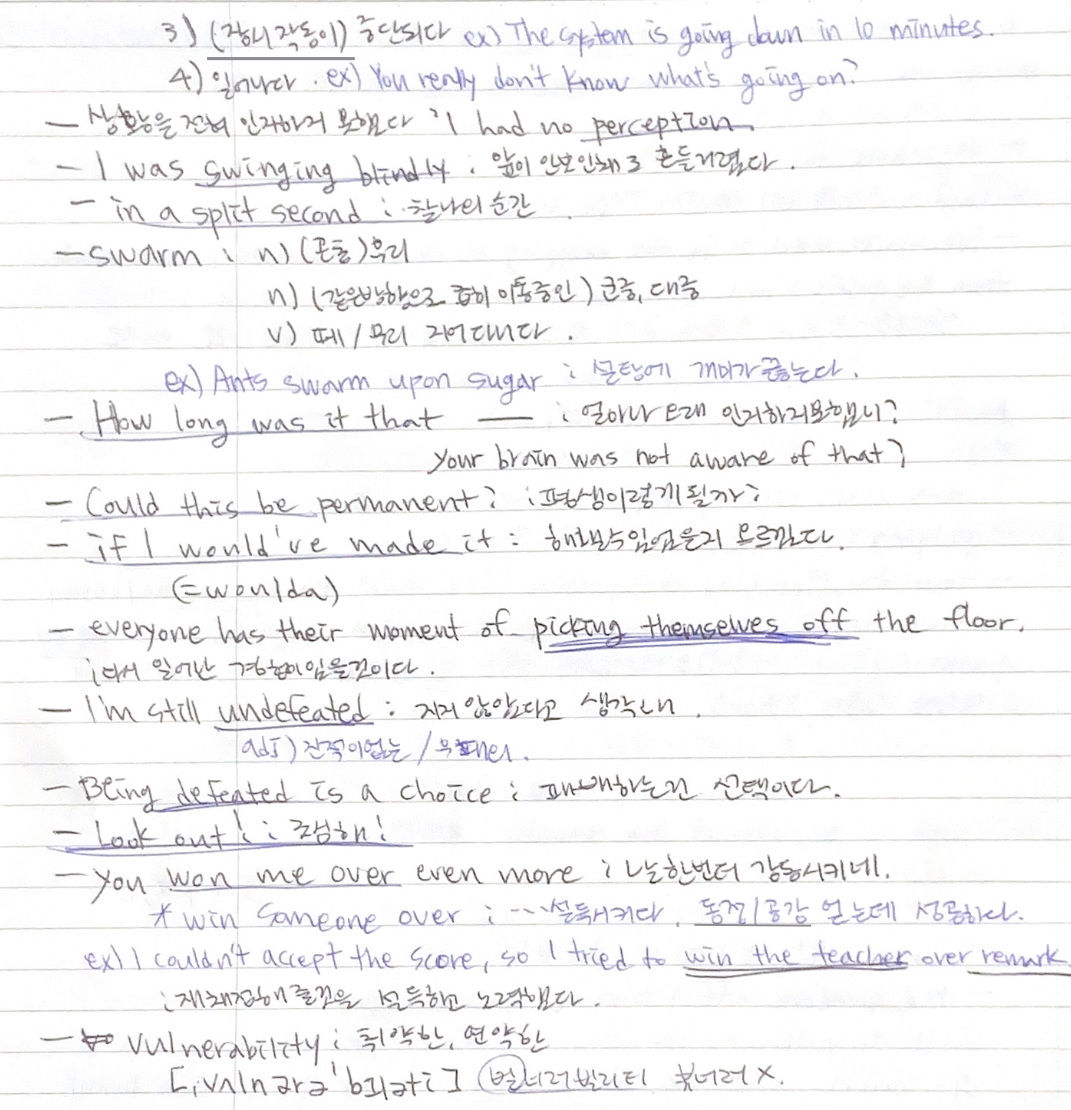 3) (장비 작동이) 중단되다 ex) The system is going down in 10 minutes.
4) 일어나다. ex) You really don't know what's going on?
- 상황을 전혀 인지하지 못했다 "I had no perception
- I was swinging blindly : 앞이 안보인채로 흔들거렸다.
- in a split second : 찰나의 순간
- swarm : n) (곤충)무리
n) (같은방향으로 급히 이동중인) 군중, 대중
v) 떼/무리 지어다니다.
ex) Ants swarm upon sugar : 설탕에 개미가 끓는다.
- How long was it that ― : 얼마나 오래 인지하지못했니?
your brain was not aware of that?
- Could this be permanent? : 평생이렇게될까?
- if I would've made it : 해낼수있었을지 모르겠다.
(=woulda)
- everyone has their moment of picking themselves off the floor.
: 다시 일어난 경험이있을것이다.
- I'm still undefeated : 지지 않았다고 생각해.
adj) 전적이없는 / 무패의.
- Being defeated is a choice : 패배하는건 선택이다.
- Look out! : 조심해!
- You won me over even more : 나는한번더 감동시키네.
* win someone over : …설득시키다. 동정/공감 얻는데 성공하다.
ex) I couldn't accept the score, so I tried to win the teacher over remark.
: 재채점해줄것을 설득하고 노력했다.
- vulnerability : 취약한, 연약한
[ˌvʌlnərəˈbɪləti] 벌너러빌리티 뷰너러 X.